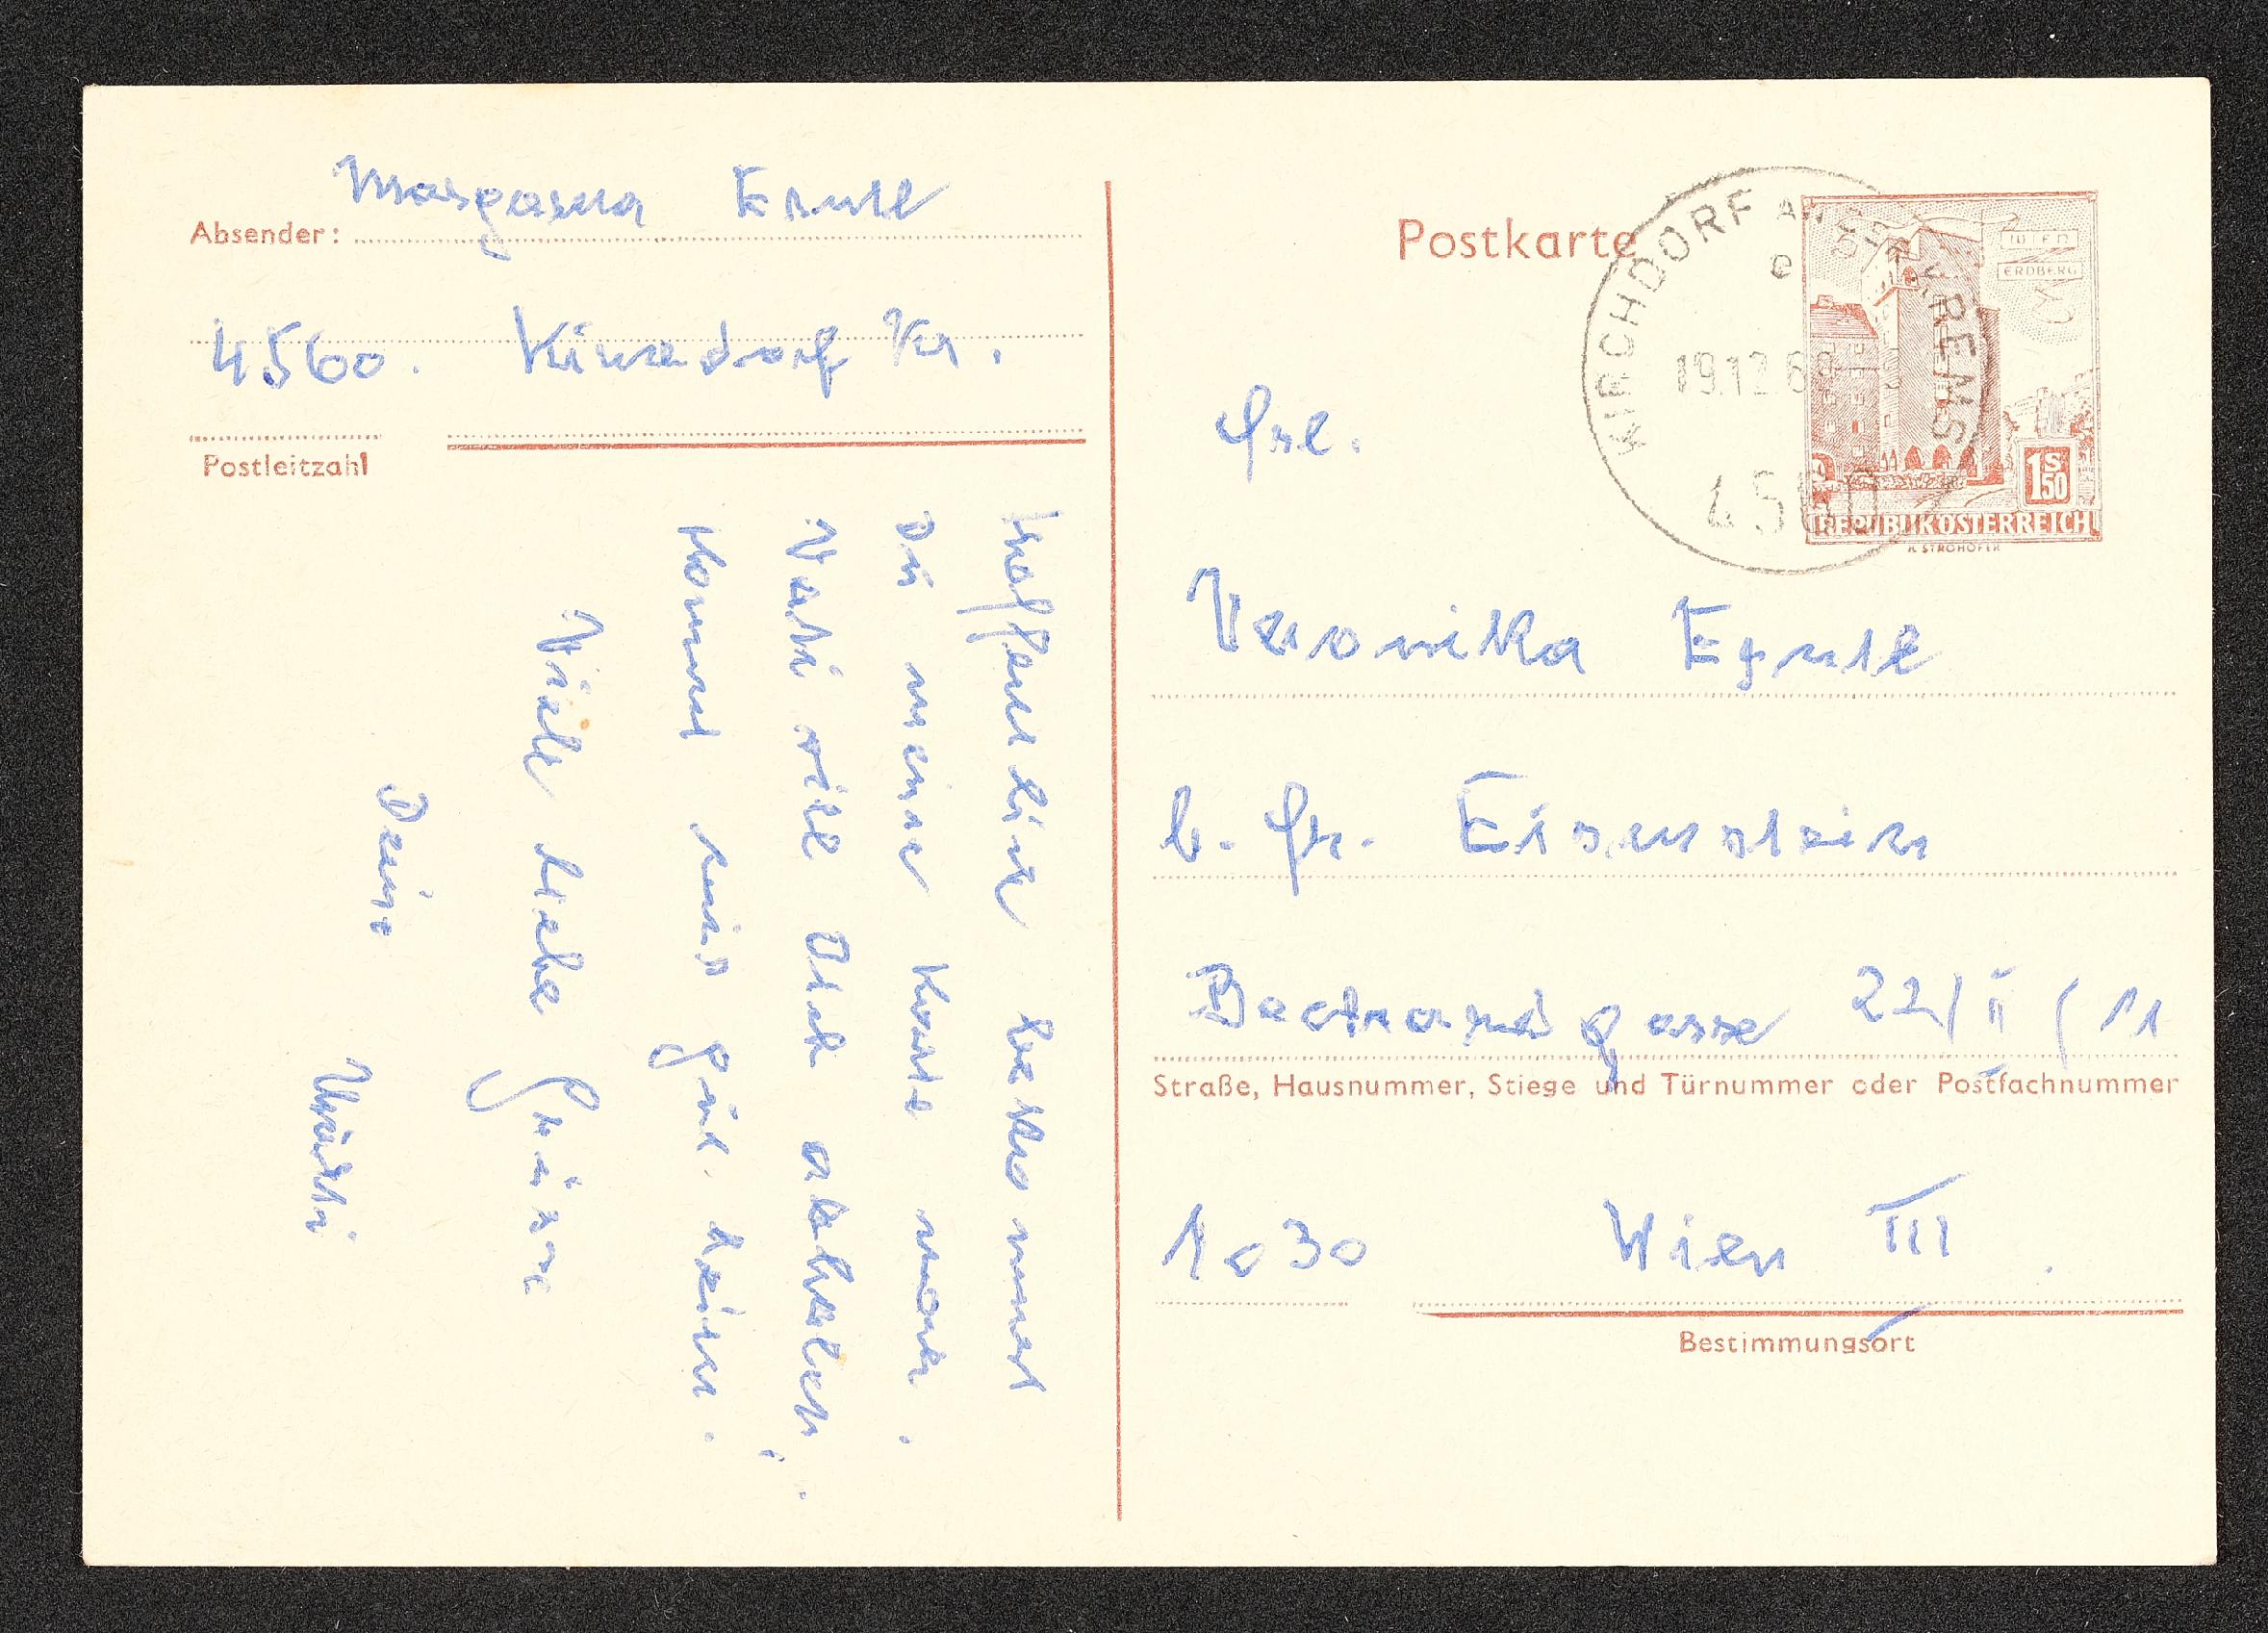 Absender: Margareta Ernst
4560. Kirchdorf Kr.
Postleitzahl
Hoffentlich bekommst
Du meine Karte noch.
Vati will Dich abholen!
Kommst
Viele liebe Grüsse
Deine Mutti
Postkarte
KIRCHDORF AN DER KREMS
e
19.12.6
4560
WIEN
ERDBERG
1 S 50
REPUBLIK ÖSTERREICH
R. STROHOFER
Frl.
Veronika Ernst
b. Fr. Eisenstein
22/II/11
Straße, Hausnummer, Stiege und Türnummer oder Postfachnummer
1030 Wien III.
Bestimmungsort